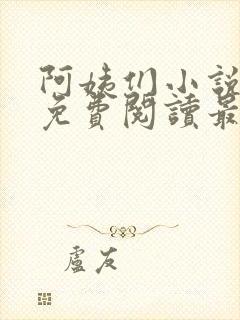 阿姨们小說
免費閱讀最
盧友